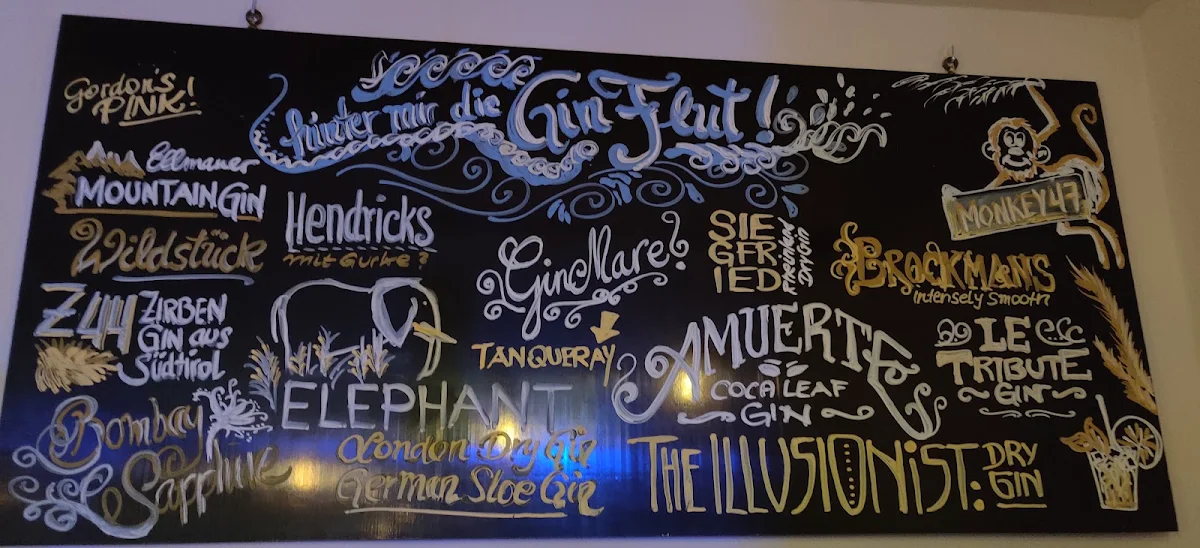 hinter mir die Gin Flut!
Gordon's
PINK!
Ellmauer
MOUNTAIN GIN
Wildstück
Z44 ZIRBEN
GIN aus
Südtirol
Bombay
Sapphire
Hendricks
mit Gurke?
ELEPHANT
London Dry Gin
German Sloe Gin
Gin Mare
TANQUERAY
SIE
GFR
IED
Rheinland
Dry Gin
AMUERTE
COCA LEAF
GIN
THE ILLUSIONiST.
DRY
GIN
MONKEY 47
BROCKMANS
intensely Smooth
LE
TRIBUTE
GIN